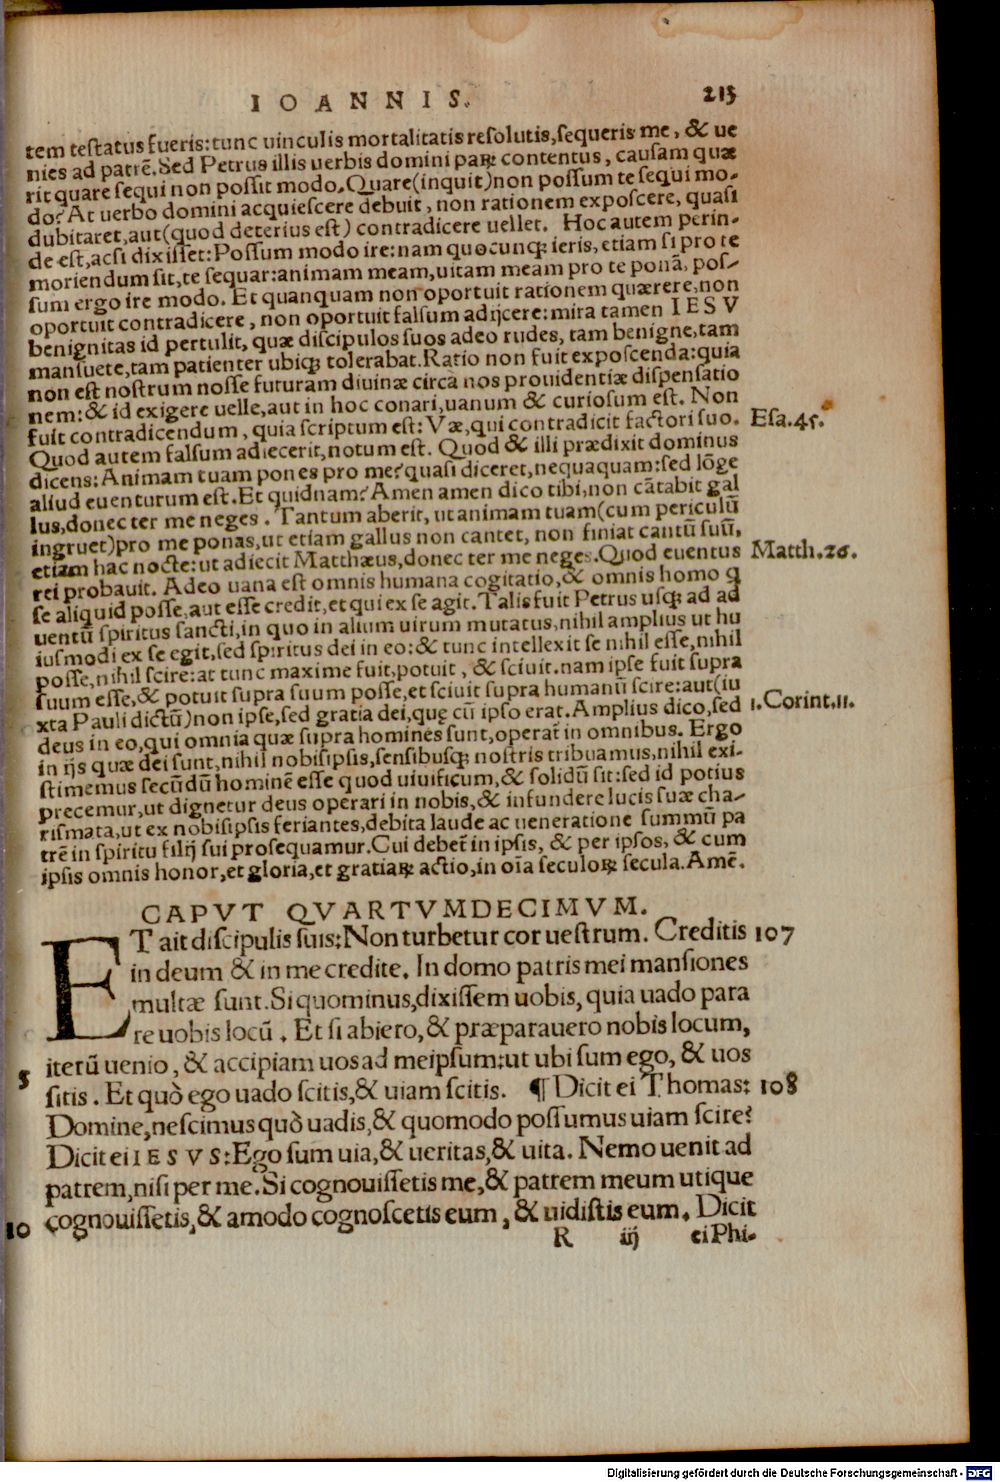 IOANNIS. 213
tem testatus fueris:tunc uinculis mortalitatis resolutis,sequeris me, & ue
nies ad patrẽ.Sed Petrus illis uerbis domini parꝝ contentus, causam quæ
rit quare sequi non possit modo.Quare(inquit)non possum te sequi mo-
do? At uerbo domini acquiescere debuit, non rationem exposcere, quasi
dubitaret,aut(quod deterius est) contradicere uellet. Hoc autem perin-
de est,acsi dixisset:Possum modo ire:nam quocunqꝫ ieris, etiam si pro te
moriendum sit,te sequar:animam meam,uitam meam pro te ponã, pos-
sum ergo ire modo. Et quanquam non oportuit rationem quærere,non
oportuit contradicere, non oportuit falsum adijcere:mira tamen IESV
benignitas id pertulit, quæ discipulos suos adeo rudes, tam benigne,tam
mansuete,tam patienter ubiqꝫ tolerabat.Ratio non fuit exposcenda:quia
non est nostrum nosse futuram diuinæ circa nos prouidentiæ dispensatio
nem:& id exigere uelle,aut in hoc conari,uanum & curiosum est. Non
fuit contradicendum, quia scriptum est: Væ,qui contradicit factori suo. Esa.45.
Quod autem falsum adiecerit,notum est. Quod & illi prædixit dominus
dicens: Animam tuam pones pro me? quasi diceret,nequaquam:sed lõge
aliud euenturum est.Et quidnam? Amen amen dico tibi,non cãtabit gal
lus,donec ter me neges. Tantum aberit, ut animam tuam(cum periculũ
ingruet)pro me ponas,ut etiam gallus non cantet, non finiat cantũ suũ,
etiam hac nocte:ut adiecit Matthæus,donec ter me neges.Quod euentus Matth.26.
rei probauit. Adeo uana est omnis humana cogitatio,& omnis homo q
se aliquid posse,aut esse credit,et qui ex se agit.Talis fuit Petrus usqꝫ ad ad
uentũ spiritus sancti,in quo in alium uirum mutatus,nihil amplius ut hu
iusmodi ex se egit,sed spiritus dei in eo:& tunc intellexit se nihil esse,nihil
posse,nihil scire:at tunc maxime fuit,potuit, & sciuit.nam ipse fuit supra
suum esse,& potuit supra suum posse,et sciuit supra humanũ scire:aut(iu
xta Pauli dictũ)non ipse,sed gratia dei,quę cũ ipso erat.Amplius dico,sed 1.Corint.11.
deus in eo,qui omnia quæ supra homines sunt,operat̃ in omnibus. Ergo
in ijs quæ dei sunt,nihil nobisipsis,sensibusqꝫ nostris tribuamus,nihil exi-
stimemus secũdũ hominẽ esse quod uiuificum,& solidũ sit:sed id potius
precemur,ut dignetur deus operari in nobis,& infundere lucis suæ cha-
rismata,ut ex nobisipsis feriantes,debita laude ac ueneratione summũ pa
trẽ in spiritu filij sui prosequamur.Cui debet̃ in ipsis, & per ipsos, & cum
ipsis omnis honor,et gloria,et gratiaꝝ actio,in oĩa seculoꝝ secula.Amẽ.
CAPVT QVARTVMDECIMVM.
ET ait discipulis suis:Non turbetur cor uestrum. Creditis 107
in deum & in me credite. In domo patris mei mansiones
multæ sunt.Si quominus,dixissem uobis, quia uado para
re uobis locũ. Et si abiero,& præparauero nobis locum,
iterũ uenio, & accipiam uos ad meipsum:ut ubi sum ego, & uos
5 sitis. Et quò ego uado scitis,& uiam scitis. ¶ Dicit ei Thomas: 108
Domine,nescimus quò uadis,& quomodo possumus uiam scire?
Dicit ei IESVS:Ego sum uia,& ueritas,& uita. Nemo uenit ad
patrem,nisi per me.Si cognouissetis me,& patrem meum utique
10 cognouissetis,& amodo cognoscetis eum, & uidistis eum. Dicit
R iij ei Phi-
Digitalisierung gefördert durch die Deutsche Forschungsgemeinschaft - DFG